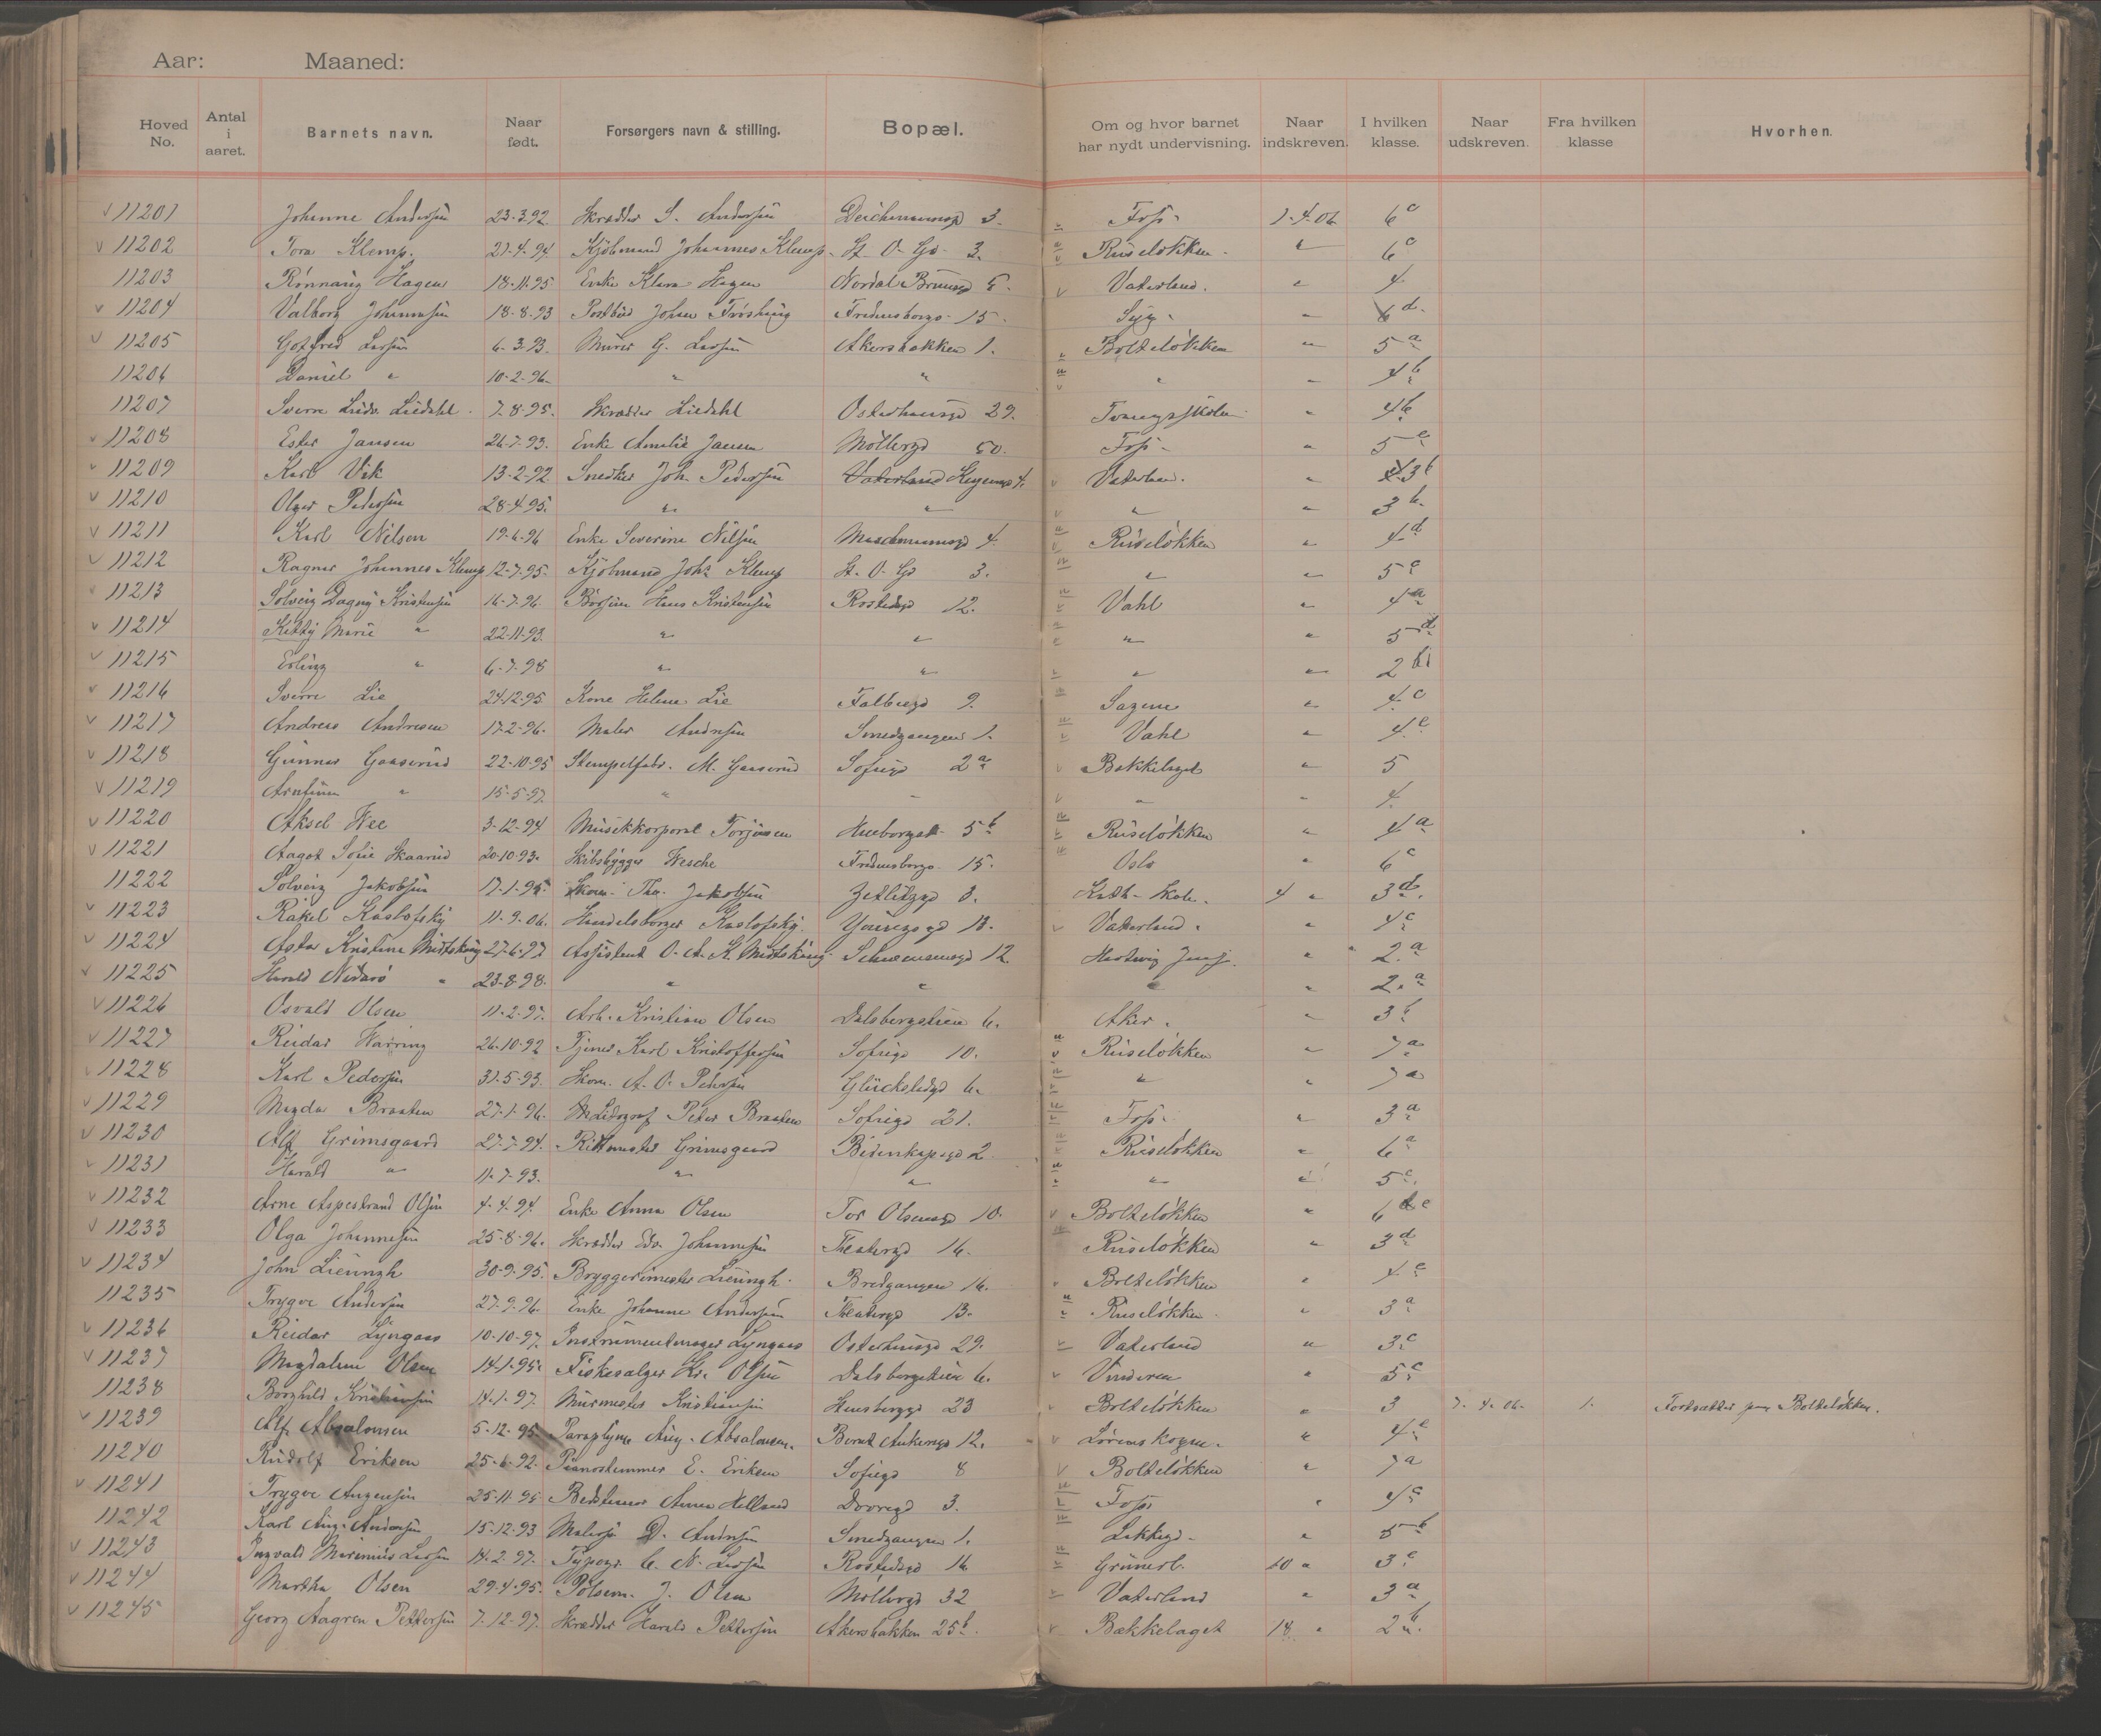 Aar: Maaned:
Hoved No. Antal i aaret. Barnets navn. Naar født. Forsørgers navn & stilling. Bopæl. Om og hvor barnet har nydt undervisning. Naar indskreven. I hvilken klasse. Naar udskreven. Fra hvilken klasse Hvorhen.
11201 Johanne Andersen 23-3-92 Skrædder S. Andersen Deichmansgd 3. Foss 1-4-06 6c
11202 Tora Klemp. 21-4-94 Kjøbmand Johannes Klemp St. O. Gd. 3. Ruseløkken " 6c
11203 Rønnaug Hagen 18-11-95 Enke Klara Hagen Nordal Brunsgd 5. Vaterland. " 4.
11204 Valborg Johannesen 18-8-93 Postbud Johan Fredensborgv 15. " 6d
11205 Gotfred Larsen 6-3-93. Murer G. Larsen Akersbakken 1. Bolteløkken " 5a
11206 Daniel " 10-2-96 " " " " 4b
11207 Sverre Liedahl 7-8-95. Skrædder Liedahl Osterhausgd 29. Tvangsskolen " 4b
11208 Ester Jansen 26-7-93. Enke Amalie Jansen Møllergd 50. Foss " 5e
11209 Karl Vik 13-2-92 Snedker Joh. Pedersen Vaterland 4. Vaterland. " 3b
11210 Olger Pedersen 28-4-95. " " " " 3b
11211 Karl Nilsen 19-6-96 Enke Severine Nilsen 4. Ruseløkken " 4d
11212 Ragnar Johannes Klemp 12-7-95. Kjøbmand Johs Klemp St. O. Gd 3. " " 5c
11213 Solveig Dagny Kristensen 16-7-96. Hans Kristensen Rostedsgd 12. Vahl " 4a
11214 Kitty Marie " 22-11-93. " " " " 5d
11215 Erling " 6-7-98 " " " " 2
11216 Sverre Lie 24-12-95. Kone Helene Lie Falbesgd 9. Sagene " 4c
11217 Andreas Andresen 17-2-96. Maler Andresen Smedgangen 1. Vahl " 4e
11218 Gunnar Gaaserud 22-10-95 Stempelfabr. M. Gaaserud Sofiegd 2a Bækkelaget " 5
11219 " 15-5-97. " " " " 4.
11220 Aksel Wee 3-12-94 Musikkorporal Torjussen 5b Ruseløkken " 4a
11221 Aagot Sofie Skaarud 20-10-93. Skibsbygger Wesche Fredensborgv. 15. Oslo " 6c
11222 Solveig Jakobsen 17-1-95. Skom. Thv. Jakobsen Zetlitzgd 8. Kath. Skole. 4 " 3d.
11223 Rakel Koslofsky 11-9-06. Handelsborger Koslofsky. Youngsgd 13. Vaterland. " 4c
11224 Asta Kristine Midtskaug 27-6-97 Assistent O. A. K. Midtskaug Schwensensgd 12 Hartvig " 2.a
11225 Harald " 23-8-98. " " " " 2.a
11226 Osvald Olsen 11-2-97. Arb. Kristian Olsen Dalsbergstien 6. Aker. " 3b
11227 Reidar Warring 26-10-92 Tjener Karl Kristoffersen Sofiegd 10. Ruseløkken " 7a
11228 Karl Pedersen 31-5-93. Skom. A. O. Pedersen 6. " " 7a
11229 Magda Braaten 27-1-96. Peder Braaten Sofiegd 21. Foss " 3a
11230 Alf Grimsgaard 27-7-94. Rittmester Grimsgaard Bidenkapsgd 2. Ruseløkken " 6a
11231 Harald " 11-7-93. " " " " 5c.
11232 Arne Aspestrand Olsen 4-4-94. Enke Anna Olsen Tor Olsensgd 10. Bolteløkken " 6
11233 Olga Johannesen 25-8-96. Skrædder Edv. Johannesen Theatergd 16. Ruseløkken " 3d
11234 John Lieungh 30-9-95. Bryggerimester Lieungh. Bredgangen 16. Bolteløkken " 4e
11235 Trygve Andersen 27-9-96. Enke Johanne Andersen Theatergd 13. Ruseløkken " 3a
11236 Reidar Lyngaas 10-10-97. Instrumentmager Lyngaas Osterhausgd 29. Vaterland " 3c
11237 Magdalene Olsen 14-1-95. Fiskesælger Kr. Olsen Dalsbergstien 6. Vinderen " 5c
11238 Borghild Kristiansen 14-1-97. Murmester Kristiansen 23 Bolteløkken " 3 7-4-06. 1. Fortsætter paa Bolteløkken.
11239 Alf Absalonsen 5-12-95. Aug. Absalonsen. Bernt Ankersgd 12. Lørenskogen. " 4e
11240 Rudolf Eriksen 25-6-92. Pianostemmer E. Eriksen Sofiegd 8 Bolteløkken " 7a
11241 Trygve 25-11-95 Bestemor Anna Helland Dovregd 3. Foss " 4c
11242 Karl Aug. Andersen 15-12-93 D. Andersen Smedgangen 1. Lakkegd. " 5b
11243 Ingvald Marinius Larsen 14-2-97. Typogr. C. N. Larsen Rostedsgd 16 Grünerl. 10 " 3c
11244 Martha Olsen 29-4-95. Pølsem. J. Olsen Møllergd 32 Vaterland " 3a
11245 Georg Aagren Pettersen 7-12-97. Skrædder Harald Pettersen Akersbakken 25b. Bækkelaget 18 " 2b.